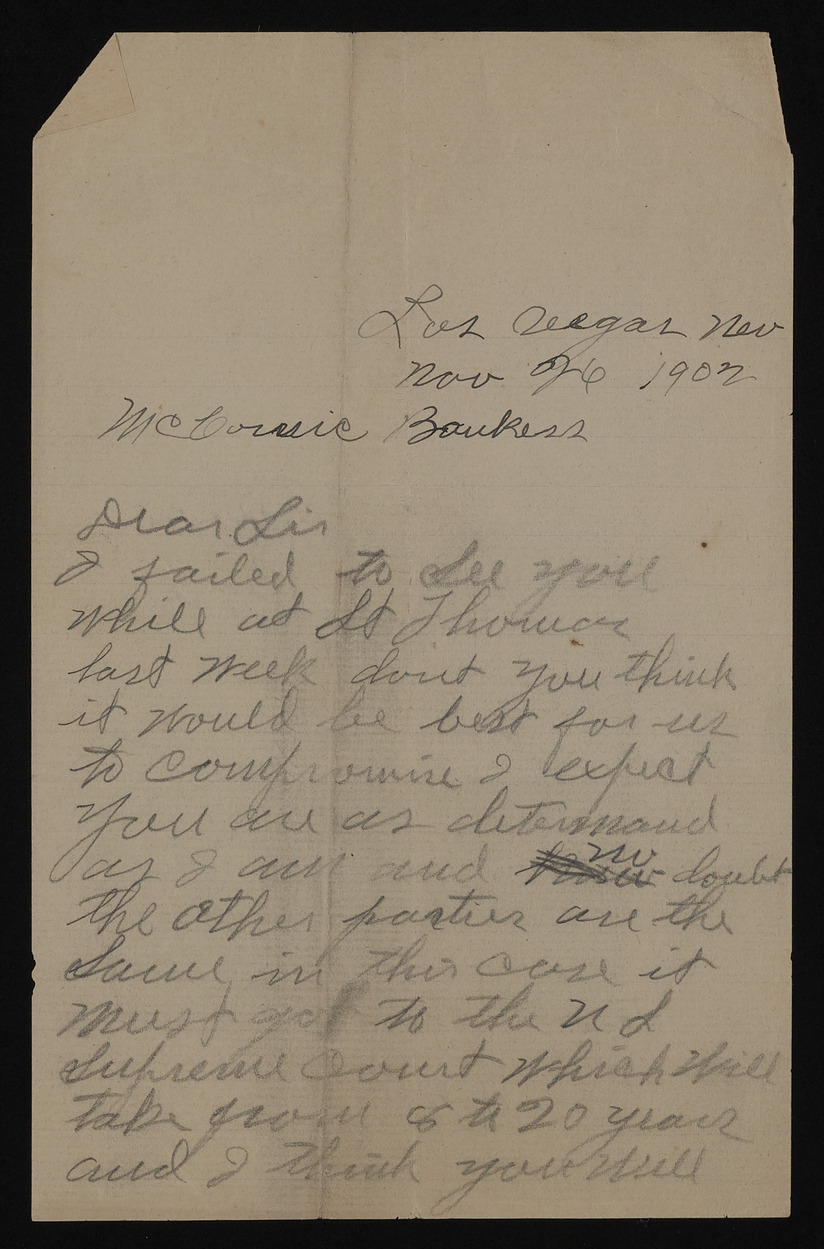 Los Veegas Nev
Nov 26 1902
Bankers
Dear Sir
I failed to see you
while at St Thomas
last week dont you think
it would be best for us
to compromise I expect
you are as determand
as I am and no doubt
the other parties are the
same in this case it
must go to the U S
Supreme Court which will
take from 8 to 20 years
and I think you will